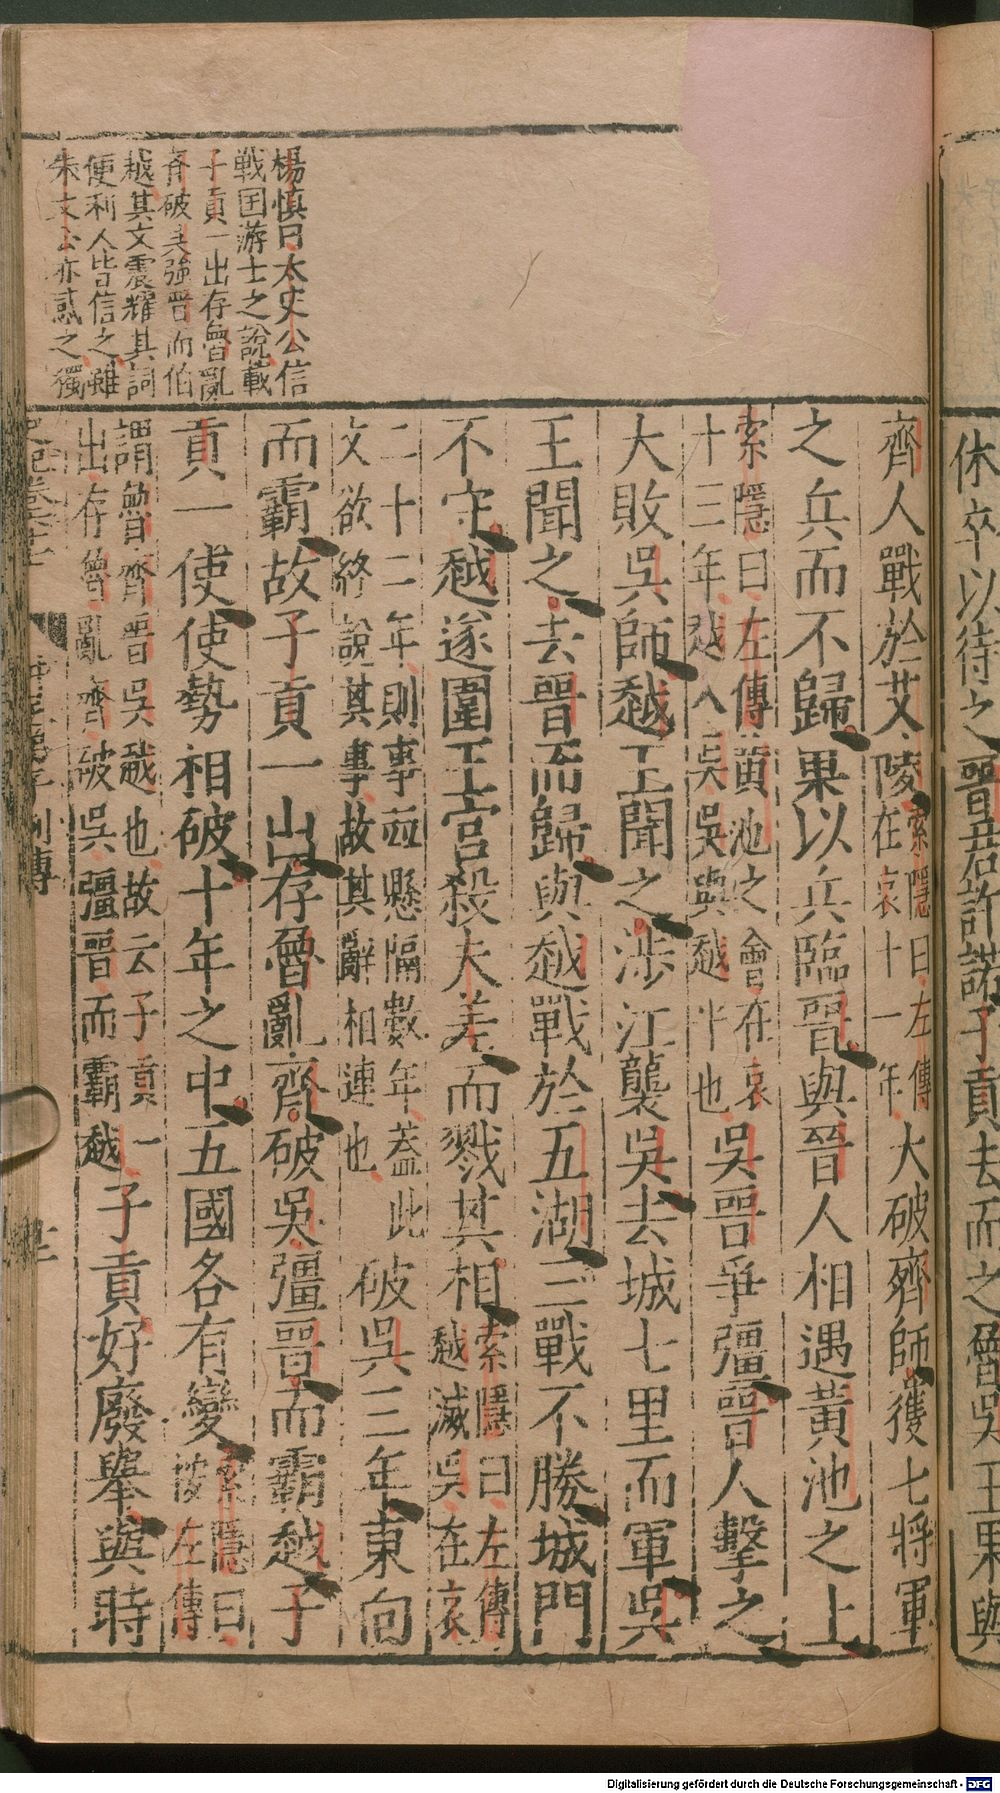 休卒以待之晉君許諾子貢去而之魯吳王果與
齊人戰於艾陵索隱曰左傳在哀十一年大破齊師獲七將軍
之兵而不歸果以兵臨晉與晉人相遇黃池之上
索隱曰左傳黃池之會在哀
十三年越入吳吳與越平也吳晉爭彊晉人擊之
大敗吳師越王聞之涉江襲吳去城七里而軍吳
王聞之去晉而歸與越戰於五湖三戰不勝城門
不守越遂圍王宮殺夫差而戮其相索隱曰左傳越滅吳在哀
二十二年則事並懸隔數年蓋此
文欲終說其事故其辭相連也破吳三年東向
而霸故子貢一出存魯亂齊破吳彊晉而霸越子
貢一使使勢相破十年之中五國各有變索隱曰按左傳
謂魯齊晉吳越也故云子貢一
出存魯亂齊破吳彊晉而霸越子貢好廢舉與時
楊慎曰太史公信
戰囯游士之說載
子貢一出存魯亂
齐破吳強晉而伯
越其文震耀其詞
便利人皆信之雖
朱文公亦惑之獨
列傳
Digitalisierung gefördert durch die Deutsche Forschungsgemeinschaft - DFG